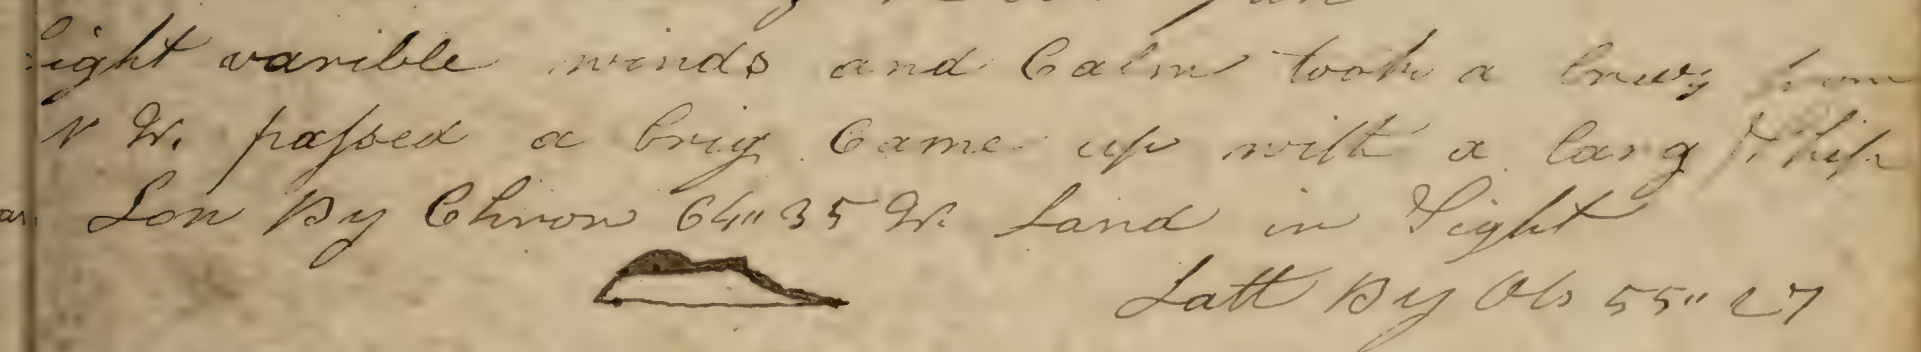 light varible winds and Calm took a breez from
N W. passed a brig Came up with a larg Ship
Lon By Chron 64" 35 W. Land in Sight
Latt By Ob 55" 27